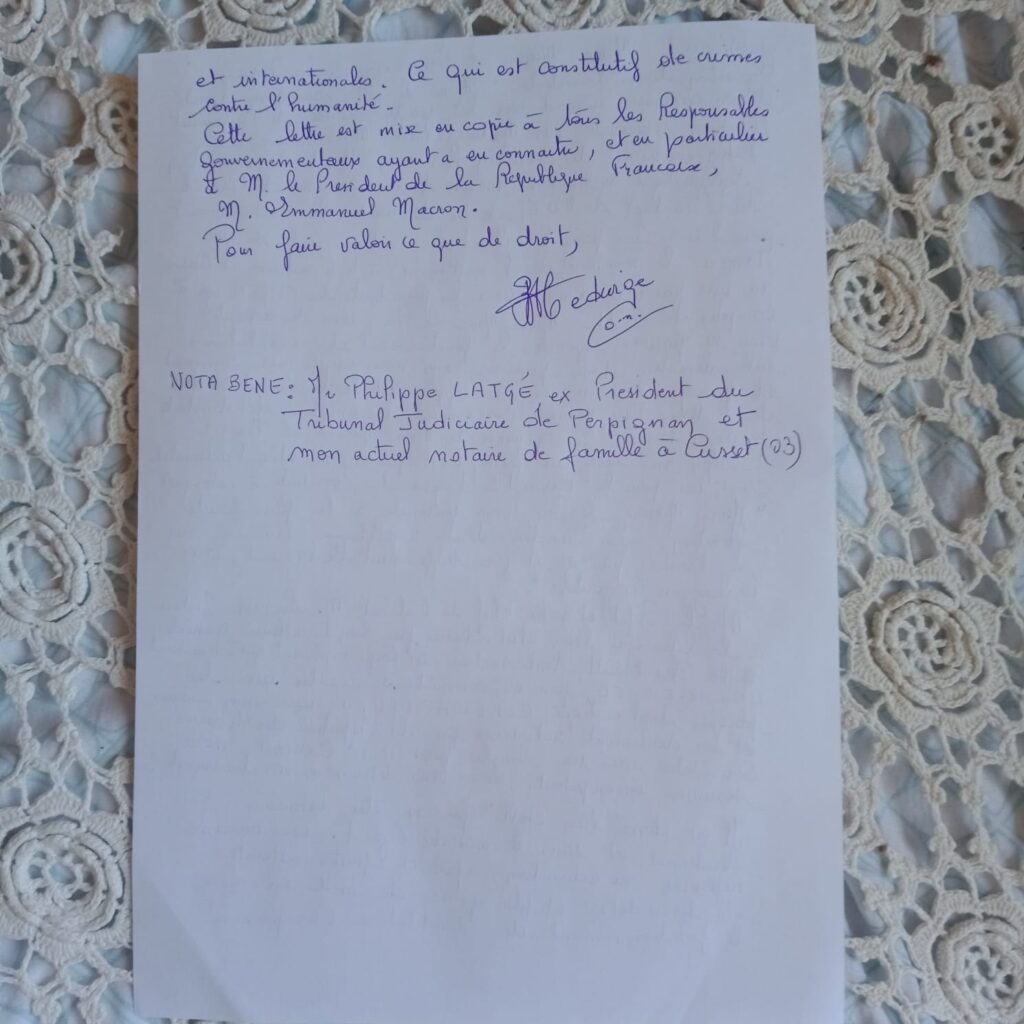 et internationales. Ce qui est constitutif de crimes
contre l'humanité.
Cette lettre est mise en copie à tous les Responsables
Gouvernementaux ayant a en connaitre, et en particulier
à M. le President de la Republique Francaise,
M. Emmanuel Macron.
Pour faire valoir ce que de droit,
Hedwige
o.m.
NOTA BENE: Me Philippe LATGÉ ex President du
Tribunal Judiciaire de Perpignan et
mon actuel notaire de famille à Cusset (03)